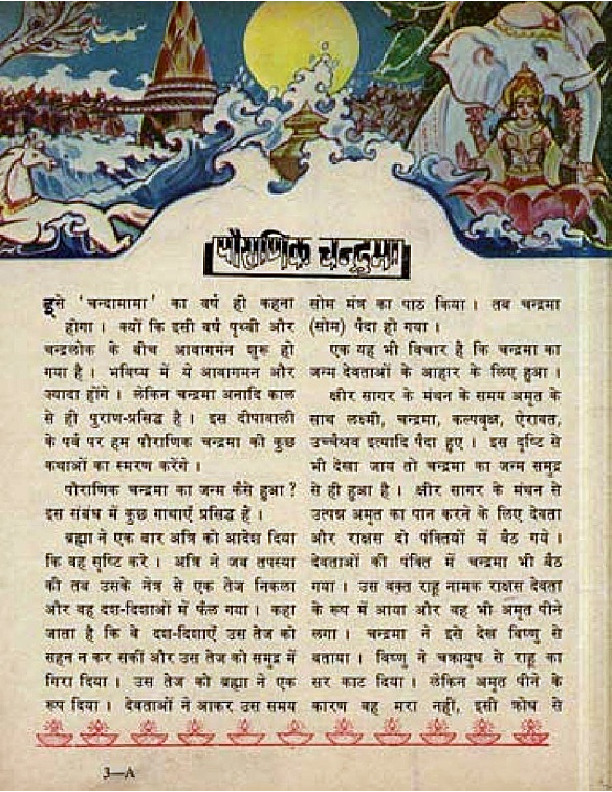 पौराणिक चन्द्रमा
इसे 'चन्दामामा' का वर्ष ही कहना
होगा । क्यों कि इसी वर्ष पृथ्वी और
चन्द्रलोक के बीच आवागमन शुरू हो
गया है । भविष्य में ये आवागमन और
ज्यादा होंगे । लेकिन चन्द्रमा अनादि काल
से ही पुराण-प्रसिद्ध है । इस दीपावाली
के पर्व पर हम पौराणिक चन्द्रमा की कुछ
कथाओं का स्मरण करेंगे ।
पौराणिक चन्द्रमा का जन्म कैसे हुआ ?
इस संबंध में कुछ गाथाएँ प्रसिद्ध हैं ।
ब्रह्मा ने एक बार अत्रि को आदेश दिया
कि वह सृष्टि करे । अत्रि ने जब तपस्या
की तब उसके नेत्र से एक तेज निकला
और वह दश-दिशाओं में फैल गया । कहा
जाता है कि वे दश-दिशाएँ उस तेज को
सहन न कर सकीं और उस तेज को समुद्र में
गिरा दिया । उस तेज को ब्रह्मा ने एक
रूप दिया । देवताओं ने आकर उस समय
सोम मंत्र का पाठ किया । तब चन्द्रमा
(सोम) पैदा हो गया ।
एक यह भी विचार है कि चन्द्रमा का
जन्म देवताओं के आहार के लिए हुआ ।
क्षीर सागर के मंथन के समय अमृत के
साथ लक्ष्मी, चन्द्रमा, कल्पवृक्ष, ऐरावत,
उच्चैश्रव इत्यादि पैदा हुए । इस दृष्टि से
भी देखा जाय तो चन्द्रमा का जन्म समुद्र
से ही हुआ है । क्षीर सागर के मंथन से
उत्पन्न अमृत का पान करने के लिए देवता
और राक्षस दो पंक्तियों में बैठ गये ।
देवताओं की पंक्ति में चन्द्रमा भी बैठ
गया । उस वक्त राहू नामक राक्षस देवता
के रूप में आया और वह भी अमृत पीने
लगा । चन्द्रमा ने इसे देख विष्णु से
बताया । विष्णु ने चक्रायुध से राहू का
सर काट दिया । लेकिन अमृत पीने के
कारण वह मरा नहीं, इसी क्रोध से
3—A